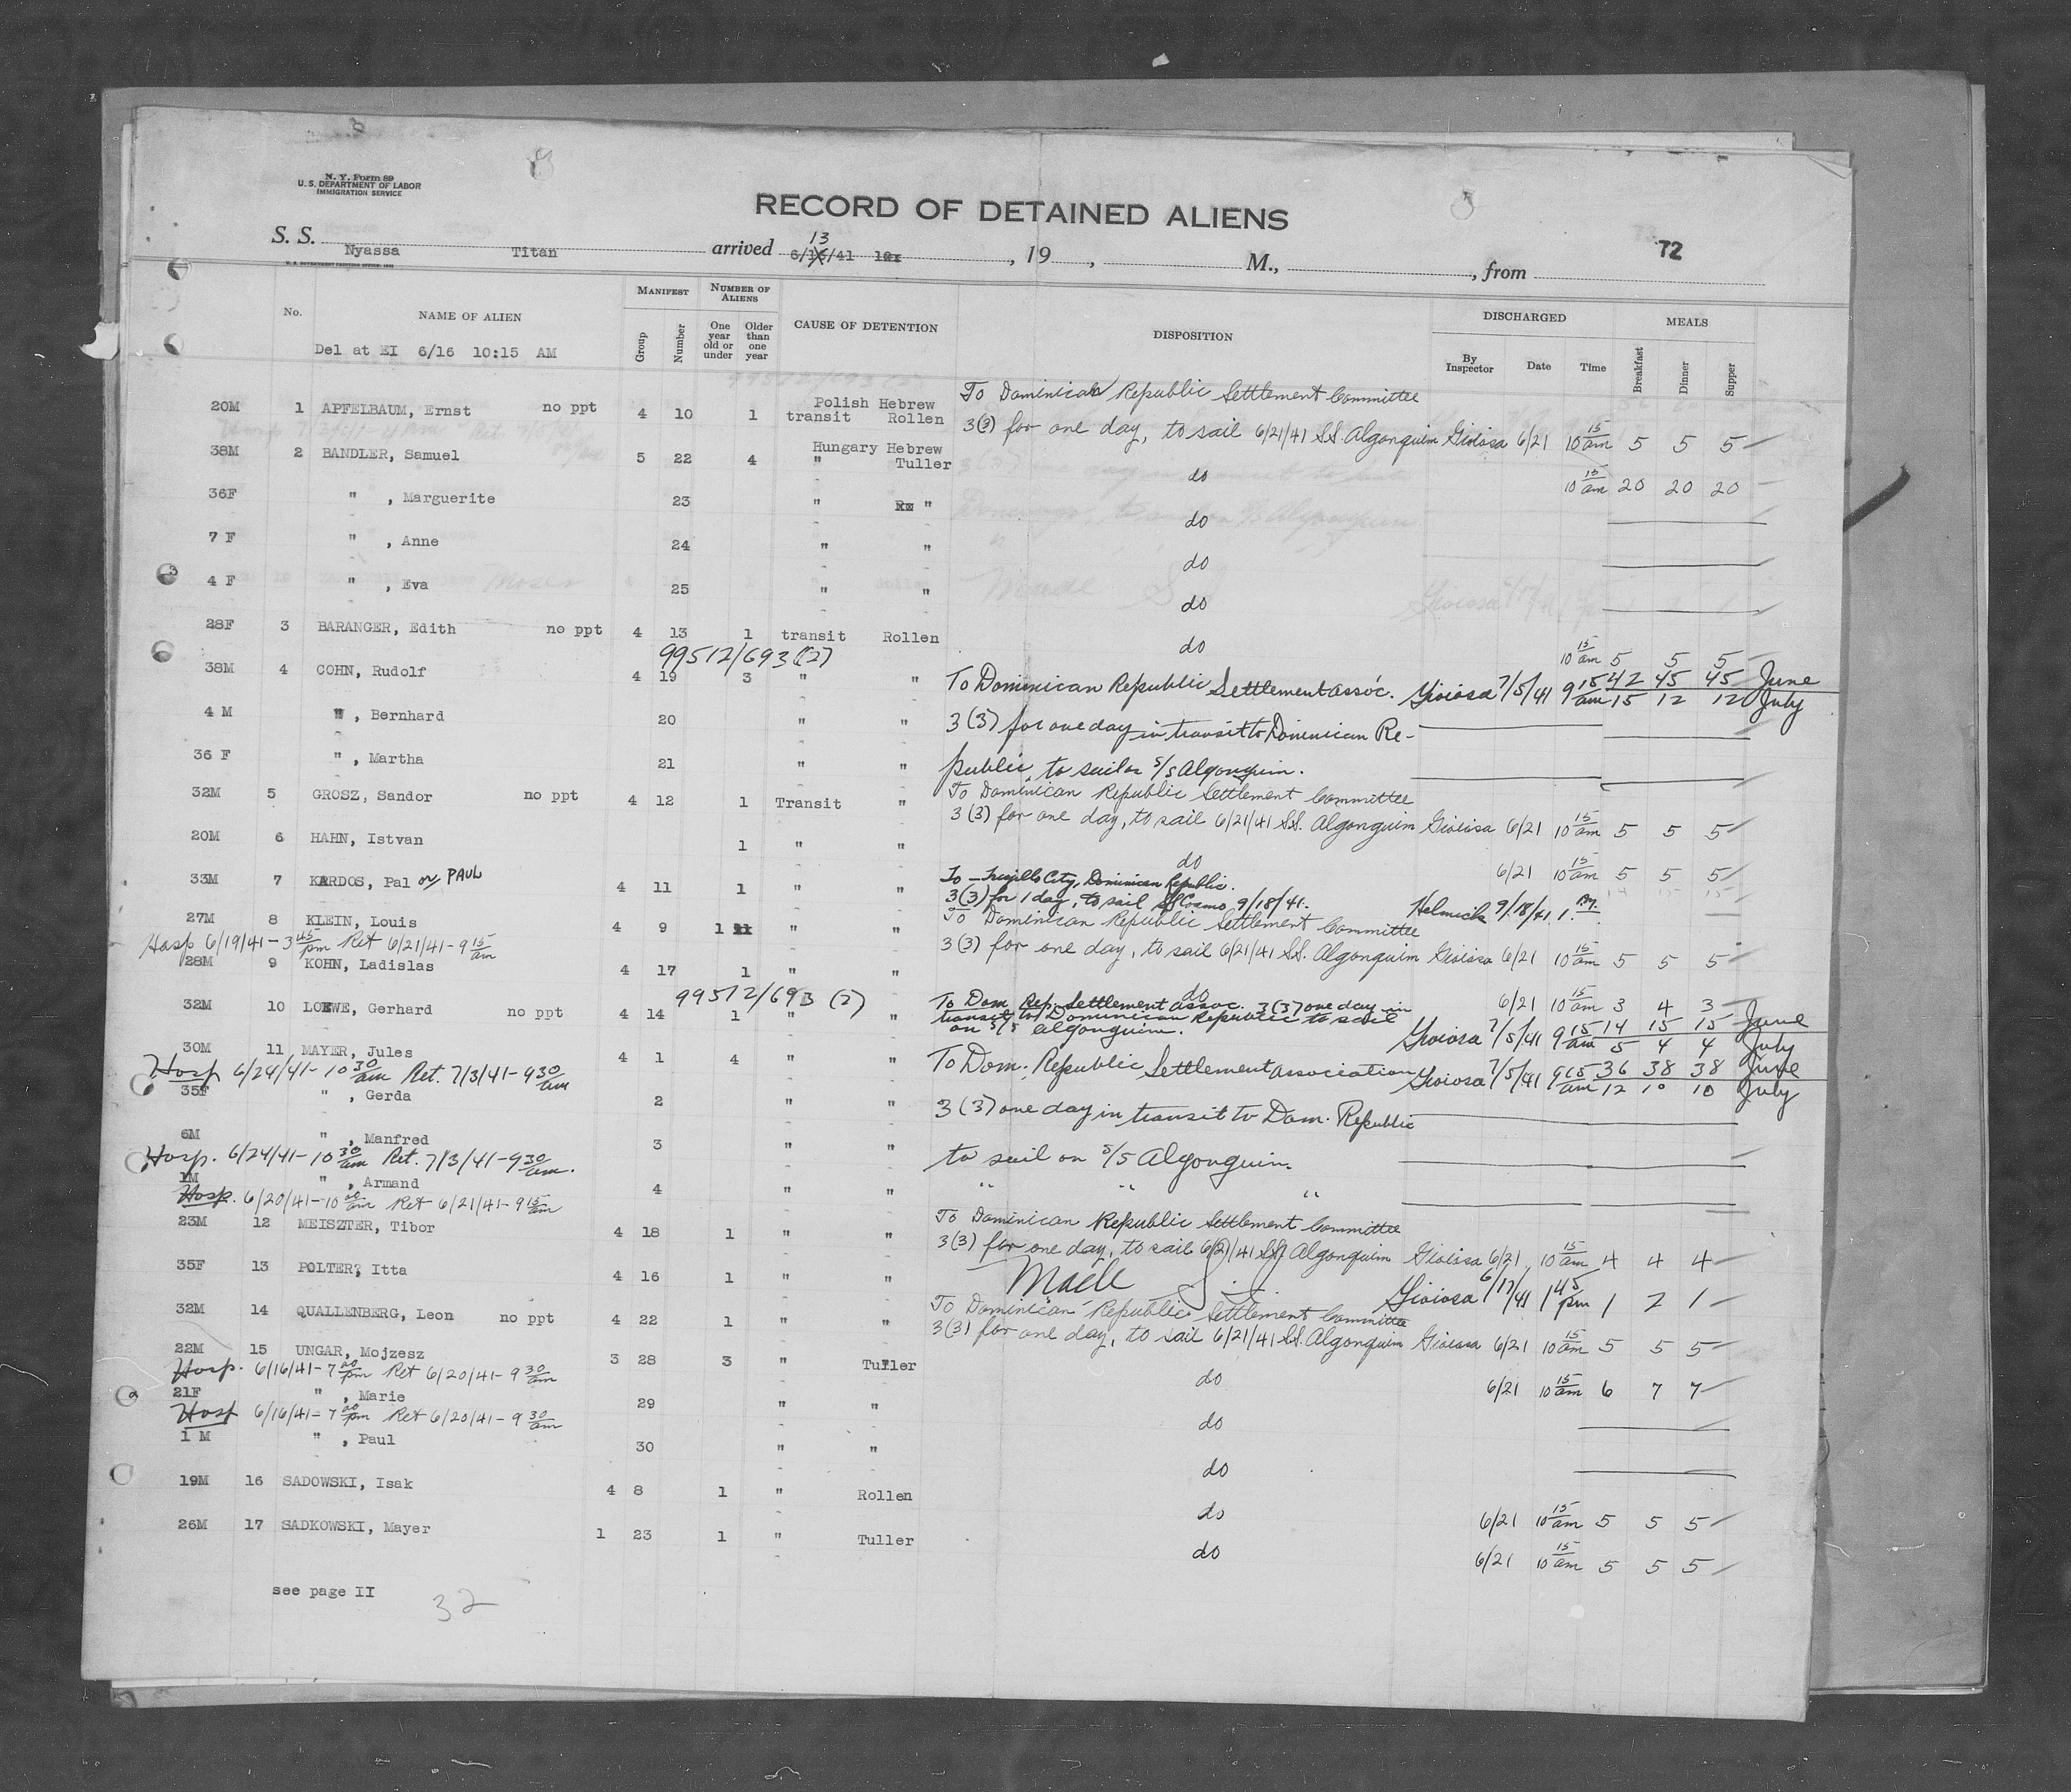 N. Y. Form 89
U. S. DEPARTMENT OF LABOR
IMMIGRATION SERVICE
RECORD OF DETAINED ALIENS
72
S. S. Nyassa Titan arrived 6/13/41 , 19 , M., , from
No. NAME OF ALIEN MANIFEST Group Number NUMBER OF ALIENS One year old or under Older than one year CAUSE OF DETENTION DISPOSITION DISCHARGED By Inspector Date Time MEALS Breakfast Dinner Supper
Del at EI 6/16 10:15 AM
To Dominican Republic Settlement Committee
20M 1 APFELBAUM, Ernst no ppt 4 10 1 Polish Hebrew transit Rollen 3(3) for one day, to sail 6/21/41 SS. Algonquin Gioiosa 6/21 10 15 am 5 5 5
38M 2 BANDLER, Samuel 5 22 4 Hungary Hebrew " Tuller do 10 15 am 20 20 20
36F " , Marguerite 23 " " do
7 F " , Anne 24 " " do
4 F " , Eva 25 " " do
28F 3 BARANGER, Edith no ppt 4 13 1 transit Rollen do 10 15 am 5 5 5
99512/693 (2)
38M 4 COHN, Rudolf 4 19 3 " " To Dominican Republic Settlement assoc. Gioiosa 7/5/41 9 15 am 42 45 45 June
15 12 12 July
4 M " , Bernhard 20 " " 3(3) for one day in transit to Dominican Re-
36 F " , Martha 21 " " public, to sail on S/S Algonquin.
To Dominican Republic Settlement Committee
32M 5 GROSZ, Sandor no ppt 4 12 1 Transit " 3(3) for one day, to sail 6/21/41 SS. Algonquin Gioiosa 6/21 10 15 am 5 5 5
20M 6 HAHN, Istvan 1 " " do 6/21 10 15 am 5 5 5
To - Trujillo City, Dominican Republic.
33M 7 KARDOS, Pal or PAUL 4 11 1 " " 3(3) for 1 day, to sail SS Coamo, 9/18/41. Helmick 9/18/41 1. PM.
To Dominican Republic Settlement Committee
27M 8 KLEIN, Louis 4 9 1 " " 3(3) for one day, to sail 6/21/41 SS. Algonquin Gioiosa 6/21 10 15 am 5 5 5
Hosp 6/19/41 - 3 45 pm Ret 6/21/41 - 9 15 am
28M 9 KOHN, Ladislas 4 17 1 " " do 6/21 10 15 am 3 4 3
99512/693 (2)
32M 10 LOEWE, Gerhard no ppt 4 14 1 " " To Dom. Rep. Settlement assoc. 3(3) one day in
transit to Dominican Republic to sail
on S/S Algonquin. Gioiosa 7/5/41 9 15 am 14 15 15 June
5 4 4 July
30M 11 MAYER, Jules 4 1 4 " " To Dom. Republic Settlement association Gioiosa 7/5/41 9 15 am 36 38 38 June
12 10 10 July
Hosp 6/24/41 - 10 30 am Ret. 7/3/41 - 9 30 am
35F " , Gerda 2 " " 3(3) one day in transit to Dom. Republic
6M " , Manfred 3 " " to sail on S/S Algonquin.
Hosp. 6/24/41 - 10 30 am Ret. 7/3/41 - 9 30 am.
1M " , Armand 4 " " " " "
Hosp. 6/20/41 - 10 00 am Ret 6/21/41 - 9 15 am
To Dominican Republic Settlement Committee
23M 12 MEISZTER, Tibor 4 18 1 " " 3(3) for one day, to sail 6/21/41 SS. Algonquin Gioiosa 6/21 10 15 am 4 4 4
35F 13 POLTER, Itta 4 16 1 " " Gioiosa 6/17/41 1 45 pm 1 2 1
To Dominican Republic Settlement Committee
32M 14 QUALLENBERG, Leon no ppt 4 22 1 " " 3(3) for one day, to sail 6/21/41 SS. Algonquin Gioiosa 6/21 10 15 am 5 5 5
22M 15 UNGAR, Mojzesz 3 28 3 " Tuller do 6/21 10 15 am 6 7 7
Hosp. 6/16/41 - 7 00 pm Ret 6/20/41 - 9 30 am
21F " , Marie 29 " " do
Hosp 6/16/41 - 7 00 pm Ret 6/20/41 - 9 30 am
1 M " , Paul 30 " " do
19M 16 SADOWSKI, Isak 4 8 1 " Rollen do 6/21 10 15 am 5 5 5
26M 17 SADKOWSKI, Mayer 1 23 1 " Tuller do 6/21 10 15 am 5 5 5
see page II
32